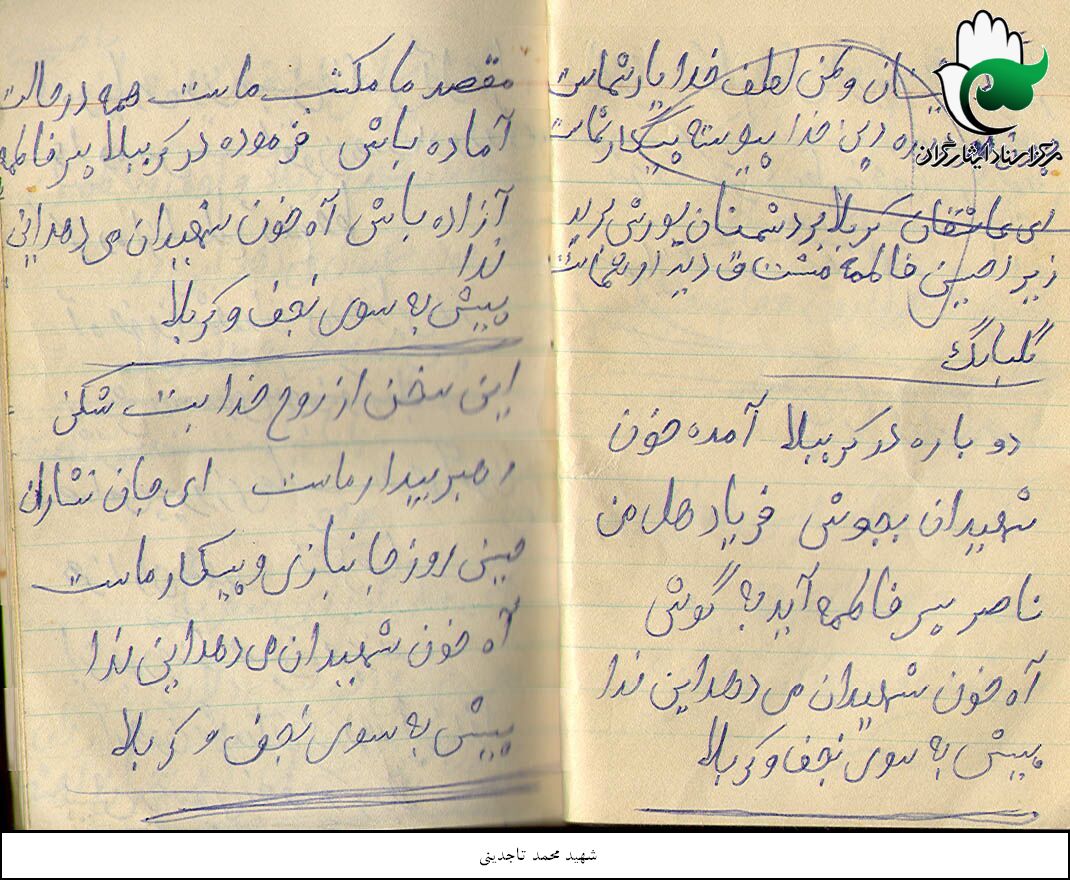 و من لطف خدا یار شماست
دین خدا پیوسته پیکار شماست
ای عاشقان کربلا بر دشمنان یورش برید
زیرا حسین فاطمه مشتاق دیدار شماست
گلبانگ
دوباره در کربلا آمده خون
شهیدان بجوش فریاد هل من
ناصر پسر فاطمه آید به گوش
آه خون شهیدان می دهد این ندا
پیش به سوی نجف و کربلا
مقصد ما مکتب ماست همه در حالت
آماده باش فرموده در کربلا پسر فاطمه
آزاده باش آه خون شهیدان می دهد این
ندا
پیش به سوی نجف و کربلا
این سخن از روح خدا بت شکن
رهبر بیدار ماست ای جان نثاران
حسینی روز جانبازی و پیکار ماست
آه خون شهیدان می دهد این ندا
پیش به سوی نجف و کربلا
مرکز اسناد ایثارگران
شهید محمد تاجدینی